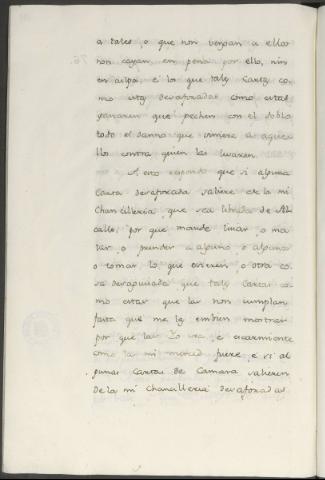 a tales, o que non vengan a ellos
non cayan, en pena por ello, nin
en culpa, e lo que tales Cartas co-
mo estas desaforadas como estas
ganaren que pechen con el doblo
todo el danno que viniere a aque-
llos contra quien las levaren
A esto respondo que si alguna
Carta desaforada saliere de la mi
Chancilleria, que sea librada de Al-
calle, por que mande lisiar, o ma-
tar o prender a alguno, o algunos
o tomar lo, que ovieren, o otra co-
sa desaguisada que tales Cartas co-
mo estas que las non cumplan
fasta que me las embien mostrar
por que las Yo vea, e escarmiente
como la mi merced fuere, e si al-
gunas Cartas de Camara salieren
de la mi Chancilleria desaforadas